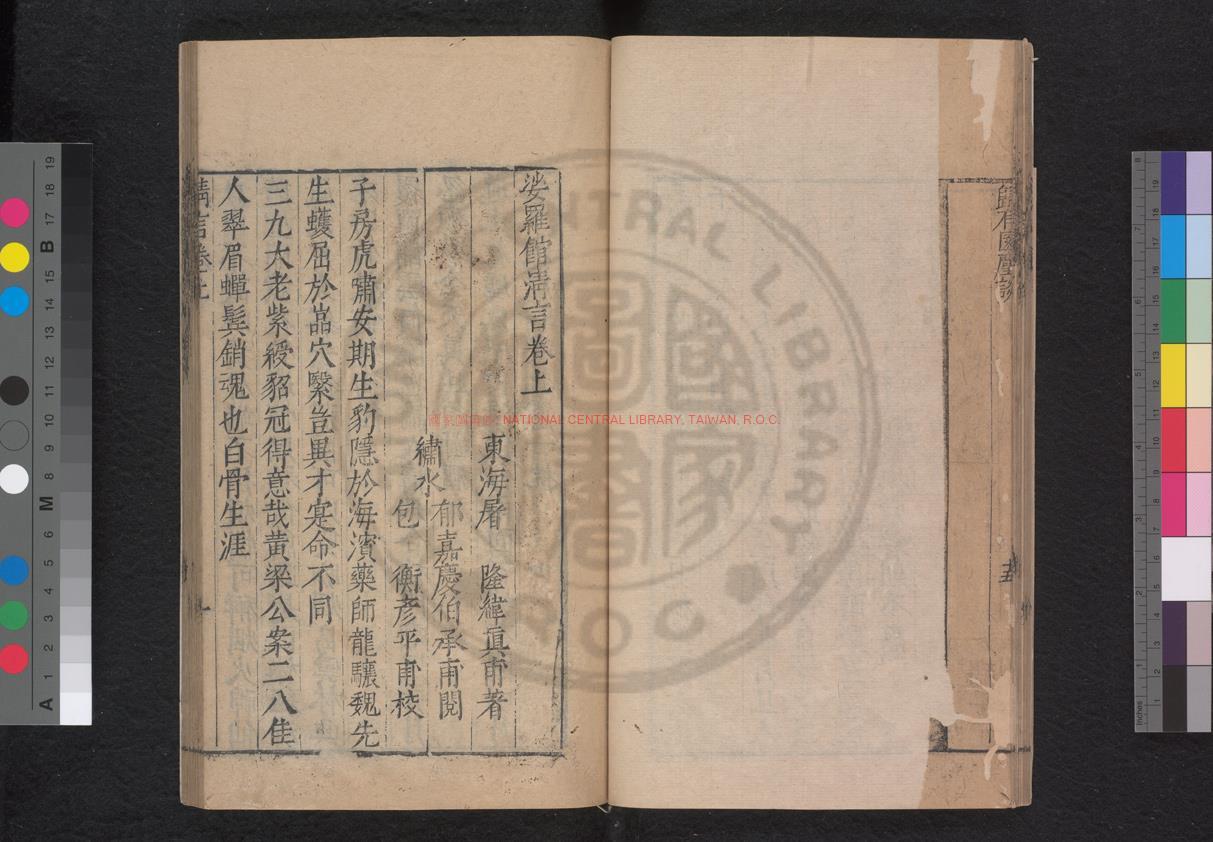 五
娑羅館清言卷上
東海屠 隆緯眞甫著
繡水郁嘉慶伯承甫閱
包 衡彥平甫校
子房虎嘯安期生豹隱於海濱藥師龍驤魏先
生蠖屈於嵓穴繄豈異才寔命不同
三九大老紫綬貂冠得意哉黄梁公案二八佳
人翠眉蟬鬂銷魂也白骨生涯
清言卷上
一
國家圖書館 NATIONAL CENTRAL LIBRARY, TAIWAN, R.O.C.
CENTRAL LIBRARY
ROC